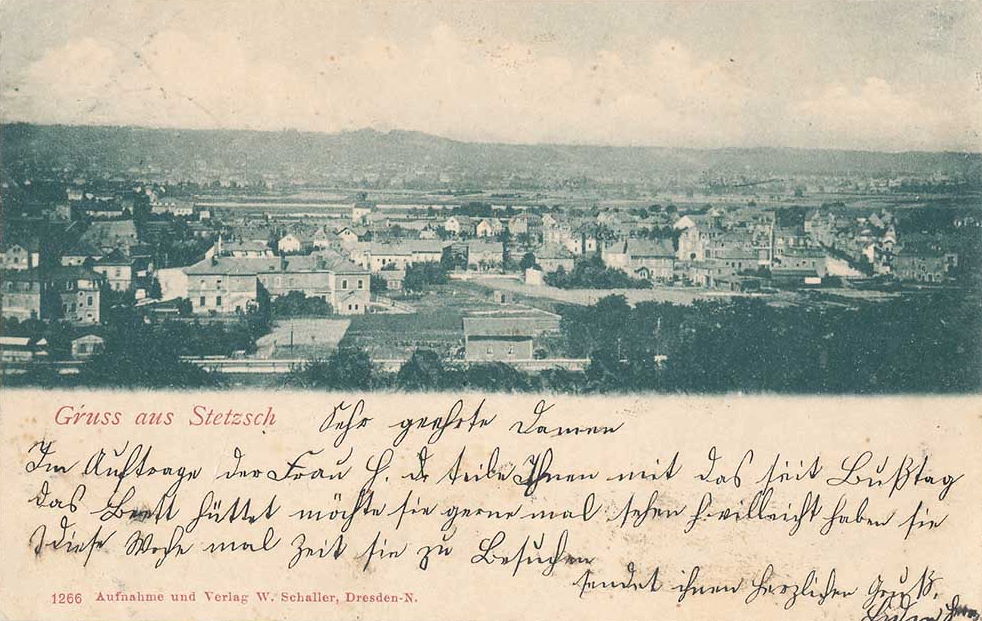 Gruss aus Stetzsch
Sehr geehrte Damen
Im Auftrage der Frau H. d. teile Ihnen mit das seit Bußtag
das Brett hüttet möchte sie gerne mal sehen villeicht haben sie
diese Woche mal Zeit sie zu Besuchen
sendet ihnen herzlichen Gruß.
1266 Aufnahme und Verlag W. Schaller, Dresden-N.